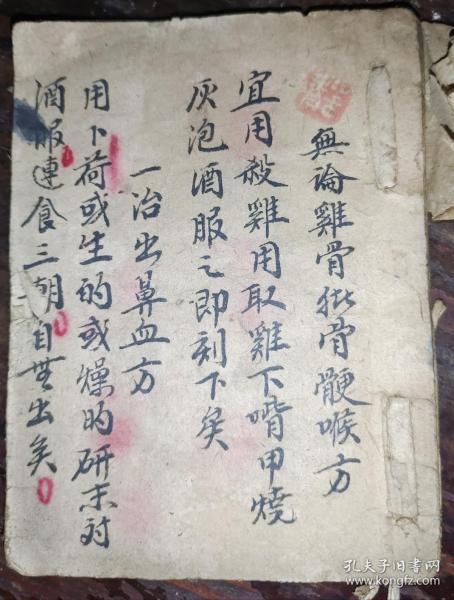 無論雞骨狐骨骾喉方
宜用殺雞用取雞下嘴甲燒
灰泡酒服之即刻下矣
一治出鼻血方
用卜荷或生的或燥的研末对
酒服連食三朝自無出矣
孔夫子旧书网
www.kongfz.com